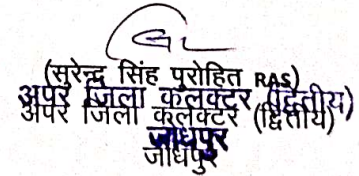 (सुरेन्द्र सिंह पुरोहित RAS)
अपर जिला कलक्टर (द्वितीय)
अपर जिला कलक्टर (द्वितीय)
जोधपुर
जोधपुर